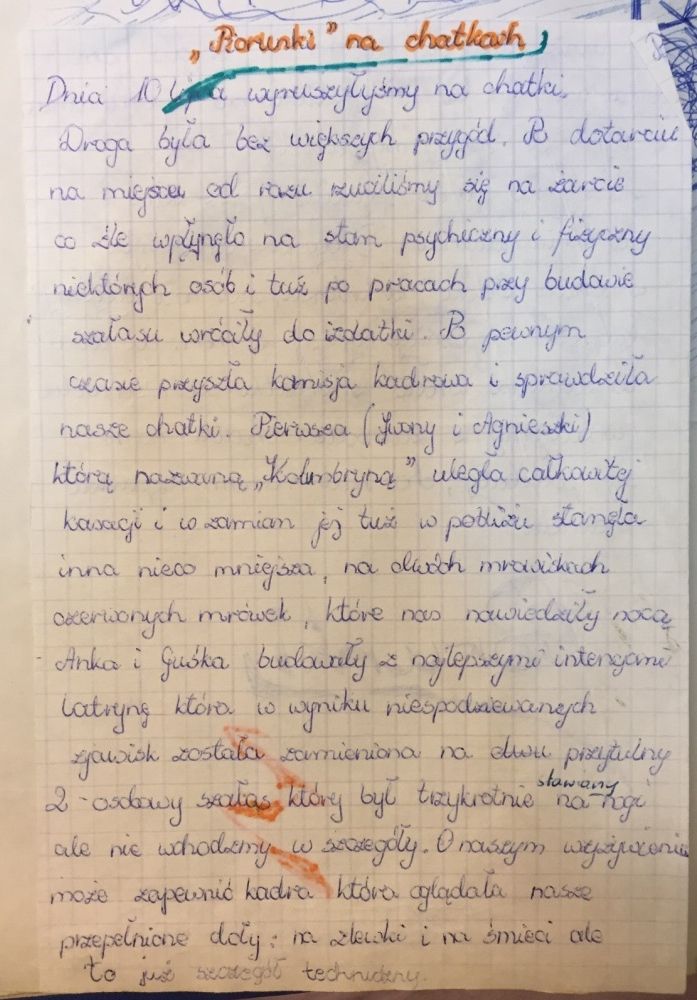 „Piorunki” na chatkach
Dnia 10 lipca wyruszyłyśmy na chatki.
Droga była bez większych przygód. Po dotarciu
na miejsce od razu rzuciliśmy się na żarcie
co źle wpłynęło na stan psychiczny i fizyczny
niektórych osób i tuż po pracach przy budowie
szałasu wróciły do izdatki. Po pewnym
czasie przyszła komisja kadrowa i sprawdziła
nasze chatki. Pierwsza (Iwony i Agnieszki)
którą nazwaną „Kolumbryną” uległa całkowitej
kasacji i w zamian jej tuż w pobliżu stanęła
inna nieco mniejsza, na dwóch mrowiskach
czerwonych mrówek, które nas nawiedziły nocą
Anka i Guśka budowały z najlepszymi intencjami
latrynę która w wyniku niespodziewanych
zjawisk została zamieniona na dwu przytulny
2-osobowy szałas który był trzykrotnie stawiany na nogi
ale nie wchodzmy w szczegóły. O naszym wyżywieniu
może zapewnić kadra która oglądała nasze
przepełnione doły: na zlewki i na śmieci ale
to już szczegół techniczny.